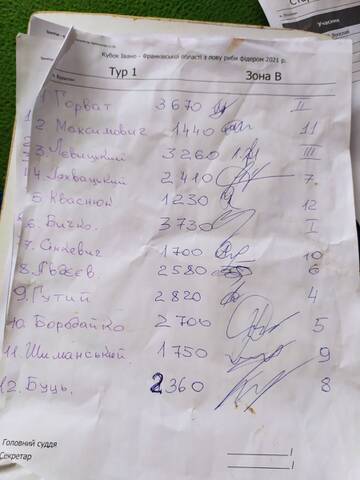 Учасник
Кубок Івано - Франківської області з лову риби фідером 2021 р.
Тур 1 Зона В
1 Горват 3670 II
2 Максимович 1440 11
3. Левицкий 3260 III
4. 2410 7
5. Кваснюк 1230 12
6. Бичко. 3730 I
7. Сінкевич 1700 10
8. 2580 6
9. Гутий 2820 4
10. Боробайко 2700 5
11. Шиманський 1750 9
12. Буць. 2360 8
Головний суддя
Секретар